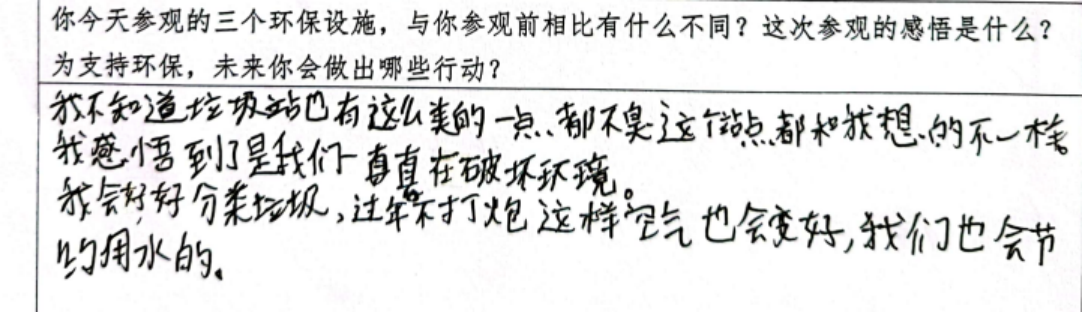 你今天参观的三个环保设施，与你参观前相比有什么不同？这次参观的感悟是什么？
为支持环保，未来你会做出哪些行动？
我不知道垃圾站也有这么美的一点、都不臭这个站点都和我想的不一样
我感悟到了是我们一直真在破坏环境。
我会好好分类垃圾，过年不打炮这样空气也会变好，我们也会节
约用水的。